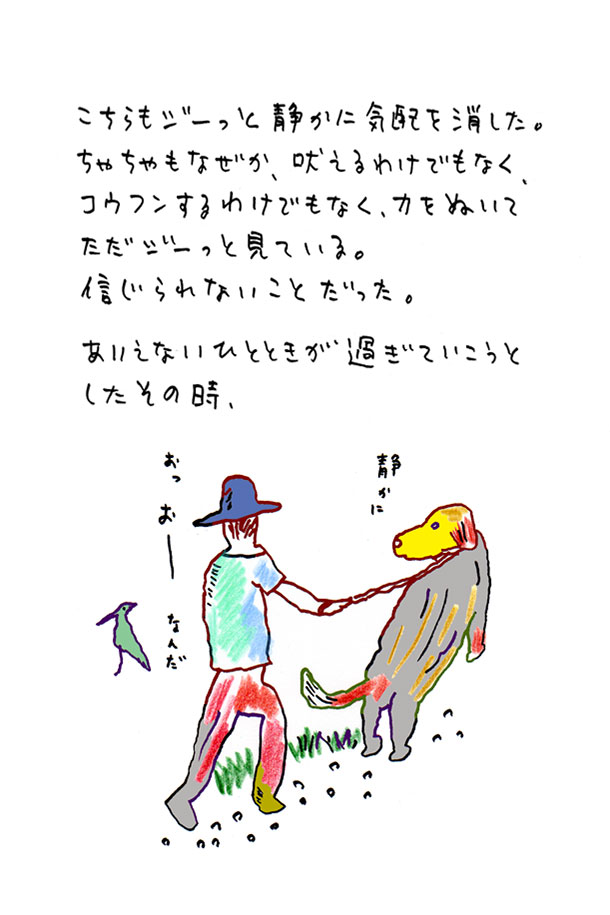 こちらもジーっと静かに気配を消した。
ちゃちゃもなぜか、吠えるわけでもなく、
コウフンするわけでもなく、力をぬいて
ただジーっと見ている。
信じられないことだった。
ありえないひとときが過ぎていこうと
したその時、
おっ
おー
なんだ
静かに